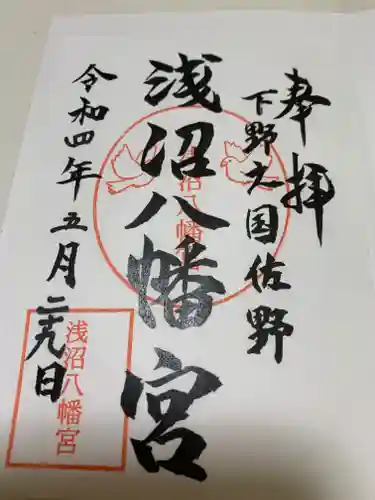 奉拝
下野大国佐野
浅沼八幡宮
浅沼八幡宮
令和四年五月二十九日
浅沼八幡宮